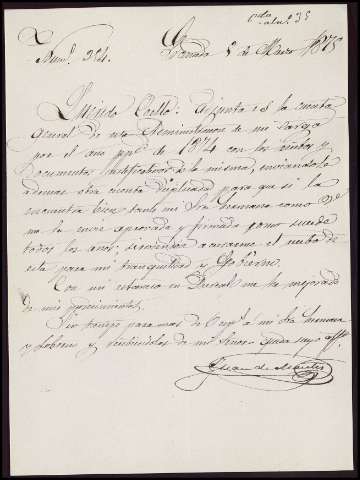 Num.º 384. Granada 5 de Marzo 1875
Querido Coello: adjunta es la cuenta
general de esa Administracion de mi cargo
por el año ppº de 1874 con los
documentos justificativos de la misma, enviandole
ademas otra cuenta duplicada para que si la
encuentra bien tanto mi Sra hermana como V.
me la envie aprovada y firmada como sucede
todos los años; sirviendose acusarme el recibo de
esta para mi tranquilidad y Gobierno.
Con un me he mejorado
de mis padecimientos.
Sin tiempo para mas de á mi Sra hermana
y Señores y de mi Señora queda suyo affº
Juan de